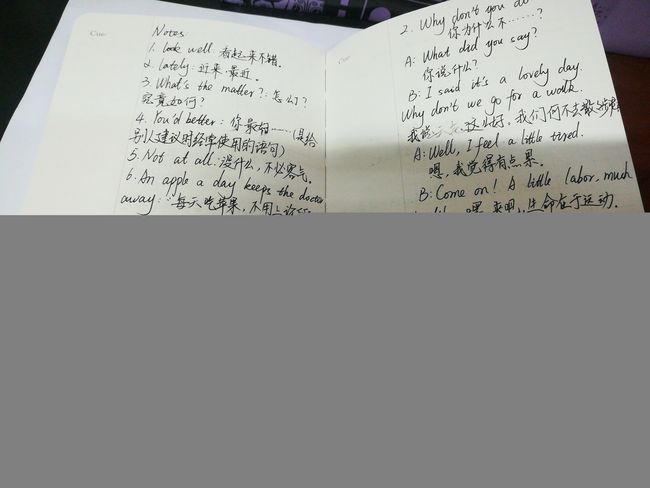 Cue:
Notes
1. Look well: 看起来不错.
2. lately: 近来.最近.
3. What's the matter?: 怎么了?
究竟如何?
4. You'd better: 你最好……(是给
别人建议时经常使用的语句)
5. Not at all: 没什么,不必客气.
6. An apple a day keeps the docto
away: 每天吃苹果,不用上
Cue:
2. Why don't you do
你为什么不……?
A: What did you say?
你说什么?
B: I said it's a lovely day.
Why don't we go for a walk.
我说 这么好,我们何不去散步
A: Well, I feel a little tired.
嗯,我觉得有点累.
B: Come on! A little labor, much
嘿,来吧,生命在于运动.